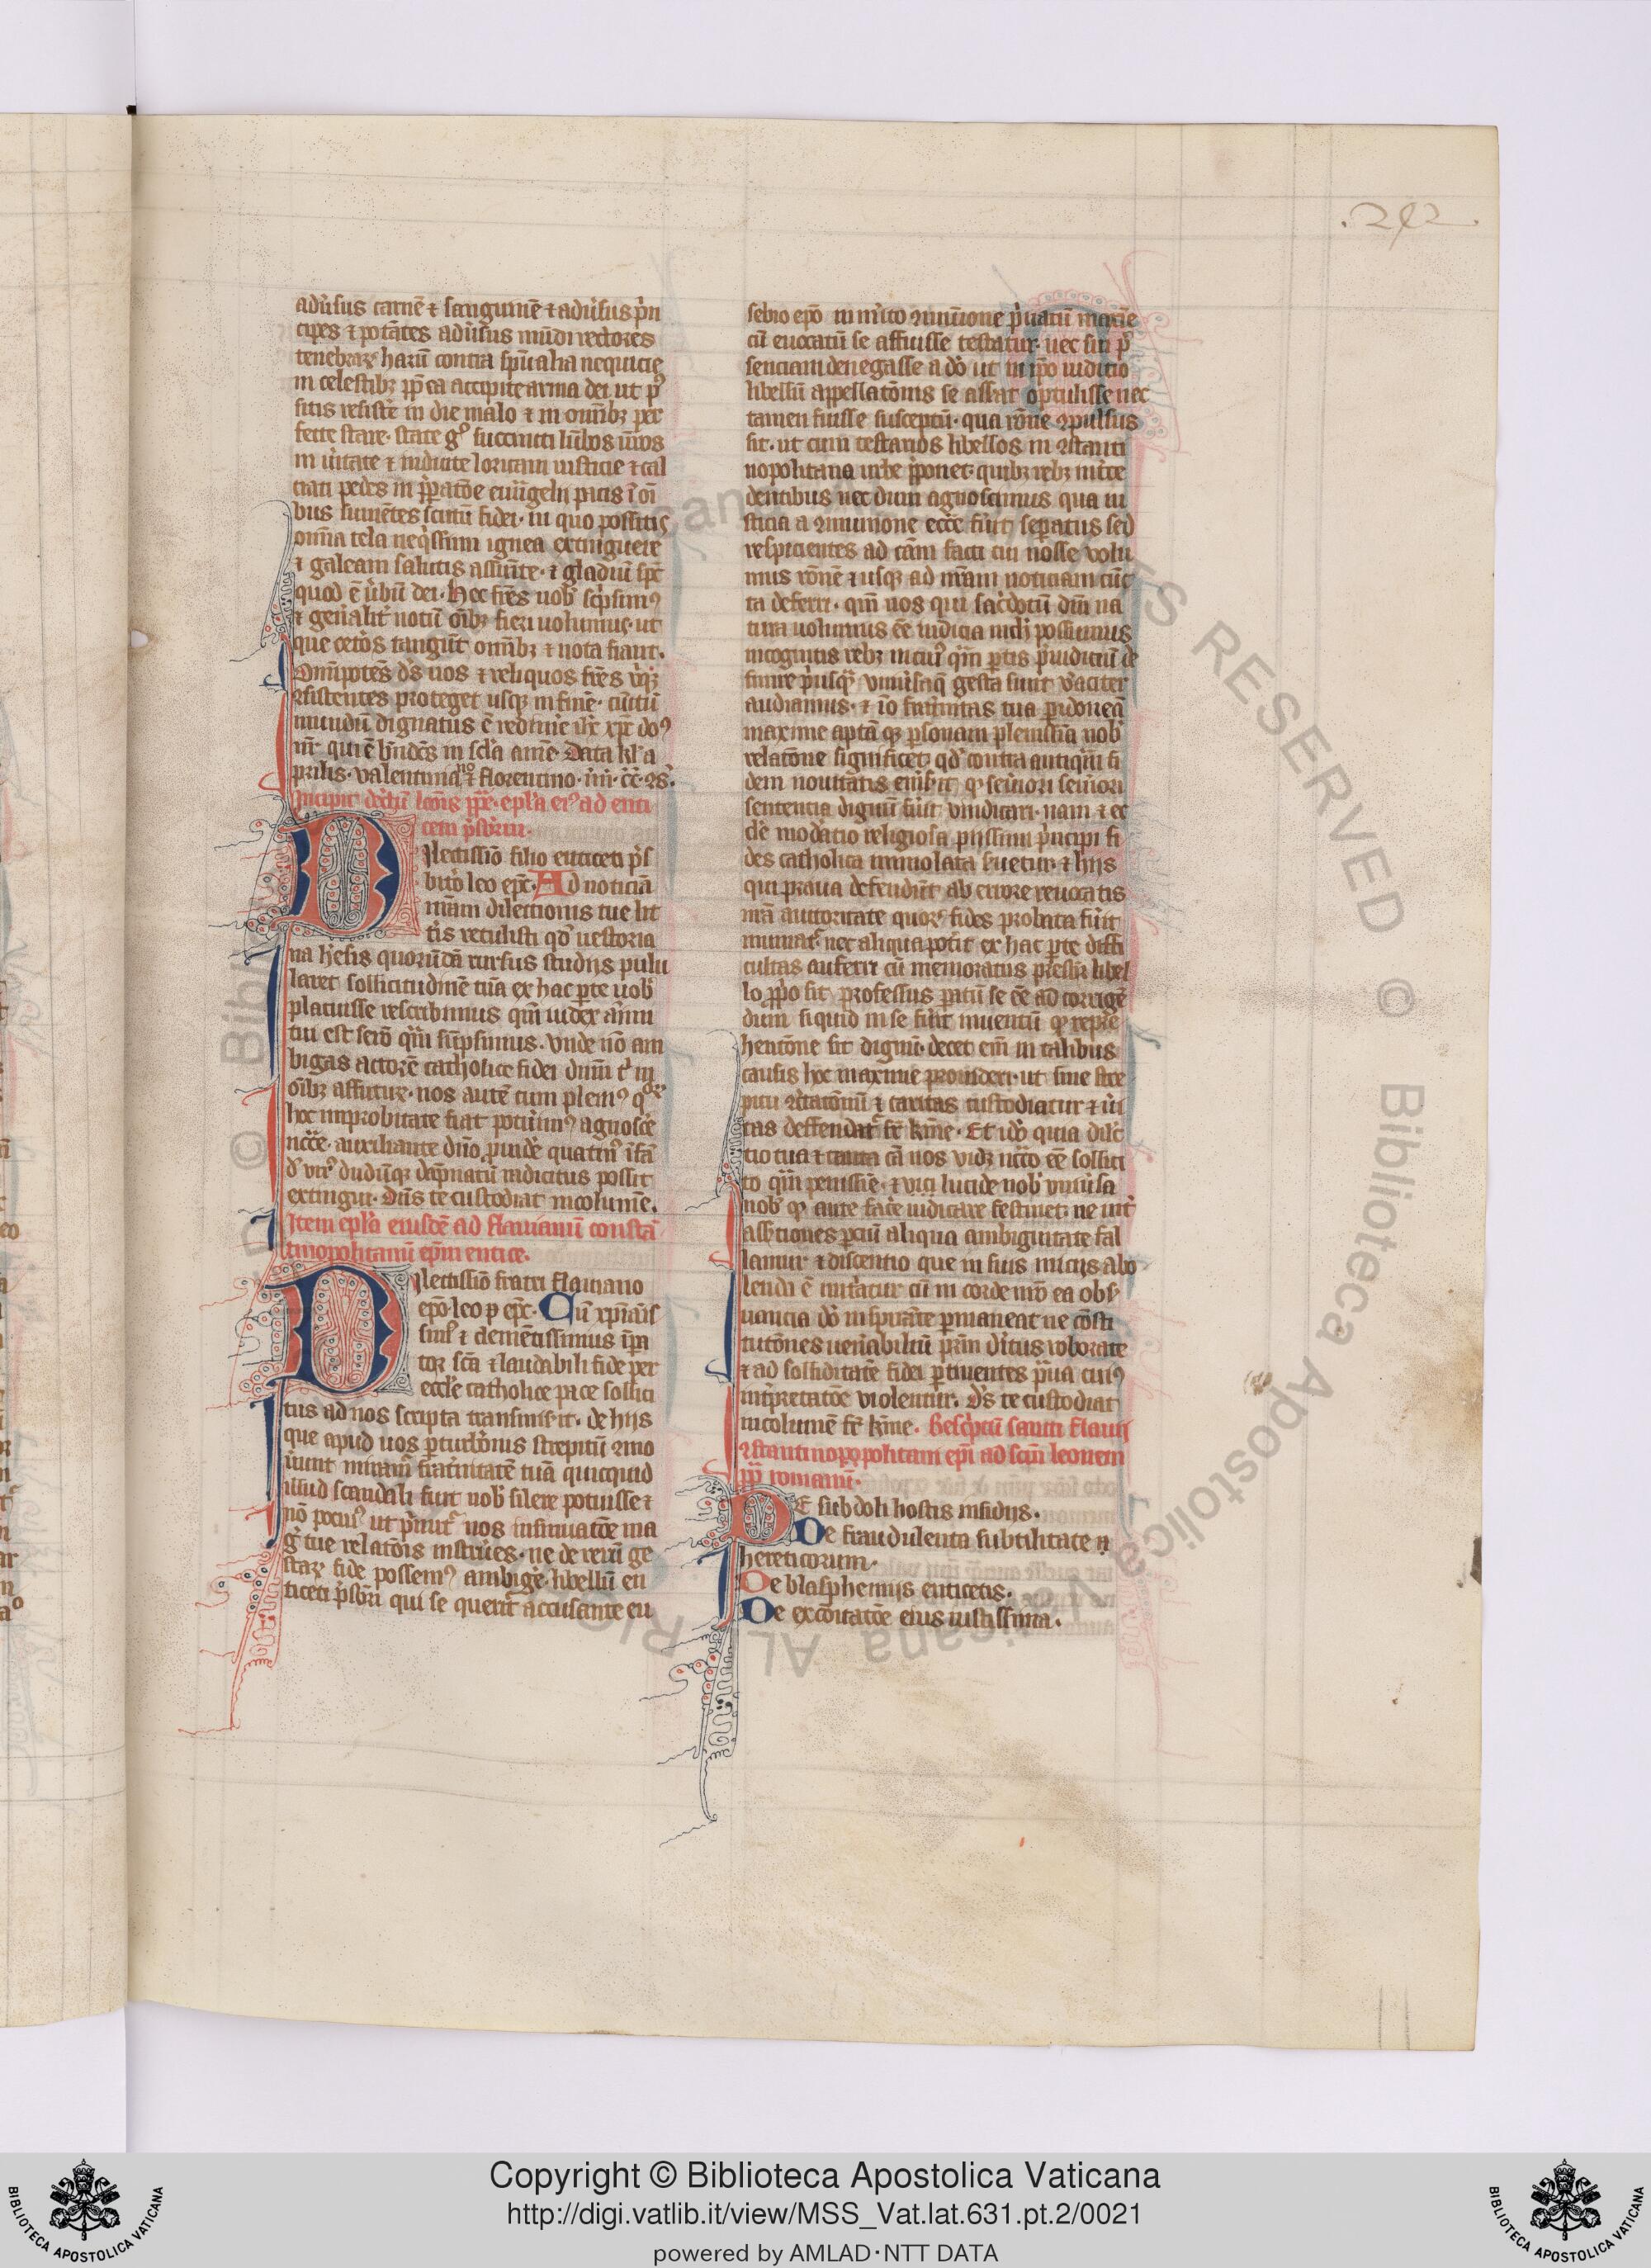 .292.
adũsus carnē ⁊ sanguinē ⁊ adũsus p̃n
cipes ⁊ potātes adũsus mūdi rectores
tenebraꝝ harū contra sp̃ualia nequicie
in celestibꝫ ꝓp̃ ea accipite arma dei ut
sitis resistẽ in die malo ⁊ in om̃ibꝫ per
fecte stare. state gº succincti lūbos ũros
in ũitate ⁊ induite loricam iusticie ⁊ cal
ciati pedes in p̃patōe euũgelij pacis
bus sumētes scutū fidei. in quo possitis
om̃ia tela neq̃ssimi ignea extinguere
⁊ galeam salutis assum̃te. ⁊ gladiū sp̃c
quod ē ũbū dei. Hec fr̃es uob̃ sc̃psimꝰ
⁊ gen̄alit̃ notū oĩbꝫ fieri uolumus. ut
que cet̃os tangūt om̃ibꝫ ⁊ nota fiant.
Om̃ipotēs d̃s uos ⁊ reliquos fr̃es
ꝯsistentes proteget usqꝫ in finē.
mundū dignatus ē redim̃e ih̃c xp̃c
nr̃. qui ē bñdc̃s in sc̃la amē. Data kl̃ a
prilis. valentiniano ⁊ florentino.
Incipit dec̃tū leōis pp̃e. epl̃a eiꝰ ad euti
cem p̃sbr̃m.
Dilectissīo filio euticeti p̃s
bit̃o leo ep̃c. Ad noticiā
nr̃am dilectionis tue lit
t̃is retulisti qd̃ nestoria
na h̃esis quorūdā rursus studijs pulu
laret sollicitudinē tuā ex hac p̱te uob̃
placuisse rescribimus qm̃ iudex añmi
tui est sermo
bigas actorē catholice fidei dñm t̃ in
oĩbꝫ affuturꝫ. nos autē cum pleniꝰ
hoc improbitate fiat potũimꝰ agnosc̃e
ncc̃e. auxiliante dño ꝓuidẽ quatinꝰ
extingui. D̃us te custodiat incolumē.
Item epl̃a eiusdē ad flauianū constā
tinopolitanū ep̃m eutice.
Dilectissīo fratri flauiano
ep̃o. leo p̱ ep̃c. Cū xp̃ianis
simꝰ ⁊ clemētissimus ip̃a
tor sc̃a ⁊ laudabili fide per
eccl̃e catholice pace sollici
tus ad nos scripta transmis̃it. de hijs
que apud uos p̱turb̃onis strepitū ꝯmo
ũunt miram̃ frat̃nitatē tuā quicquid
illud scandali fuit uob̃ silere potuisse ⁊
nō pocius ut p̃mit̃ nos insinuatōe ma
g̃ tue relatōis instrũes. ne de rerū ge
staꝝ fide possemꝰ ambig̃e. libellū eu
ticeti p̃sbr̃i qui se querit̃ accusante eu
sebio ep̃o inm̃ito ꝯmūione p̃uatū maxīe
cū euocatū se affuisse testatur. nec sui p̃
senciam denegasse adõ ut in ip̃o iudicio
libellū appellatōnis se asserat optulisse nec
tamen fuisse susceptū. qua rōne ꝯpulsus
sit. ut contestatorios libellos in ꝯstanti
nopolitana urbe p̃ponet̃. quibꝫ rebꝫ int̃ce
dentibus nec dum agnoscimus qua iu
sticia a ꝯmunione ecc̃e fũit sep̱atus sed
respicientes ad cām facti tui nosse volu
mus rōnē ⁊ usqꝫ ad nr̃am noticiam cūc
ta deferri. qm̃ nos qui sac̃dotū dñi ma
tura uolumus ēe iudicia nichil possumus
incognitis rebꝫ in cuiꝰ q̃m p̱tis p̃iudiciū de
finire p̃usqꝫ uniũsa q̃ gesta sunt ũaciter
audiamus. ⁊ iō frat̃nitas tua p̱ idoneā
maxime aptā qꝫ p̱sonam plenissīa uob̃
relatōne significet qd̃ contra antiq̃m fi
dem nouitatis emis̃it qꝫ seũiori seũiori
sentencia dignū fũit uindicari. nam ⁊ ec
cl̃e mod̃atio religiosa pijssimi p̃ncipi fi
des catholica inuiolata seruetur ⁊ hijs
qui praua defendūt ab errore reuocatis
nr̃a auctoritate quorꝫ fides probata fũit
muniat̃. nec aliqua pot̃it ex hac p̱te diffi
cultas auferri cū memoratus presbr̃ libel
lo ꝓp̃o sit professus p̱atū se ēe ad corrigē
dum siquid in se fũit inuentū qꝫ repre
hentōne sit dignū. decet em̃ in talibus
causis hoc maxime prouideri. ut sine stre
pitu ꝯ̃tatōnū ⁊ caritas custodiatur ⁊ ũi
tas deffendat̃ fr̃ kr̃me. Et idõ quia dilc̃
tio tua ⁊ tanta cā nos vidꝫ ncc̃io ēe solliti
to q̃m plenissīe ⁊ luci lucide nob̃ uniũsa
nob̃ qꝫ ante fac̃e iudicare festinet. ne int̃
assc̃tiones p̱ciū aliqua ambiguitate fal
lamur ⁊ discentio que in suis iniciis abo
lenda ē nut̃iatur cū in corde nr̃o ea obs̃
uancia dõ inspirāte p̱maneat ne cōsti
tutōnes uen̄abiliū pr̃m diũitus roborate
⁊ ad soliditatē fidei p̱tinentes p̃ua cuiꝰ
int̃pretatōe violentur. D̃s te custodiat
incolumē fr̃ kr̃me. Resc̃ptū sancti flauij
ꝯstantinopopolitani ep̃i ad sc̃m leonem
pp̃ romanū.
De subdoli hostis insidijs.
De fraudulenta subtilitate
hereticorum.
De blasphemijs euticetis.
De excōitatōe eius iustissima.
© Biblioteca Apostolica Vaticana ALL RIGHTS RESERVED
Copyright © Biblioteca Apostolica Vaticana
http://digi.vatlib.it/view/MSS_Vat.lat.631.pt.2/0021
powered by AMLAD·NTT DATA
BIBLIOTECA APOSTOLICA VATICANA
BIBLIOTECA APOSTOLICA VATICANA